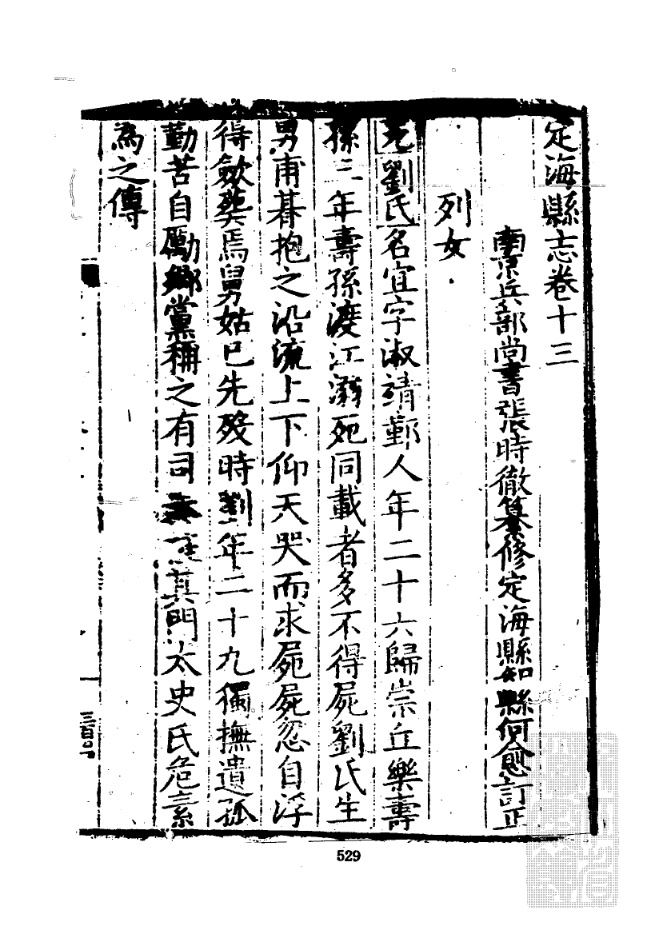 定海縣志卷十三
南京兵部尚書張時徹纂修定海縣知縣何愈訂正
列女
元劉氏名宜字淑靖鄞人年二十六歸崇丘樂壽
孫三年壽孫渡江溺死同載者多不得屍劉氏生
男甫朞抱之沿流上下仰天哭而求屍屍忽自浮
得歛葬焉舅姑已先歿時劉年二十九獨撫遺孤
勤苦自勵鄉黨稱之有司其門太史氏危素
為之傳
529